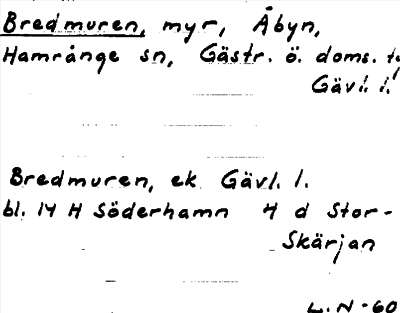 Bredmuren, myr, Åbyn,
Hamrånge sn, Gästr. ö. doms. t.,
Gävl. l.
Bredmuren, ek. Gävl. l.
bl. 14 H Söderhamn 4 d Stor-
Skärjan
L. N - 60